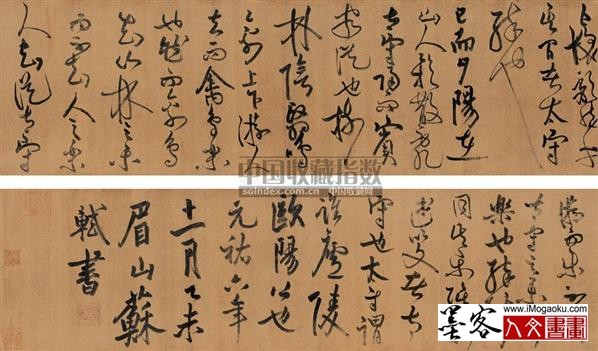 其間者太守
醉也
已而夕陽在
山人影散亂
太守歸而賓
客從也樹
林陰翳鳴
聲上下遊人
去而禽鳥樂
也然而禽鳥
知山林之樂
而不知人之樂
人知從太守
遊而樂而不
知太守之樂
樂也醉能
同其樂醒能
述以文者太
守也太守謂
誰廬陵
歐陽公也
元祐六年
十一月乙未
眉山蘇
軾書
中国收藏指数
soindex.com.cn 中国收藏网
墨客
www.iMogaoku.com
人文書畫